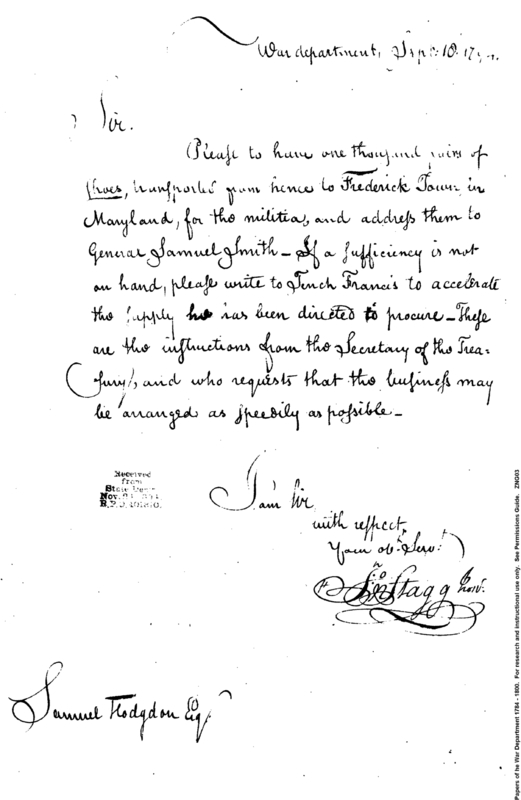 War department, Sepr. 18. 179
Sir.
Please to have one thousand pairs of
shoes, transported from hence to Frederick Town in
Maryland, for the militia, and address them to
General Samuel Smith – If a sufficiency is not
on hand, please write to Tench Francis to accelerate
the supply he has been directed to procure – These
are the instructions from the Secretary of the Trea=
sury, and who requests that the business may
be arranged as speedily as possible –
Received
from
State Dept.
Nov.
I am Sir
with respect,
Your obt. Servt.
Jno Stagg Junr.
Samuel Hodgdon Esqr
Papers of he War Department 1784 - 1800. For research and instructional use only. See Permissions Guide. ZNG03